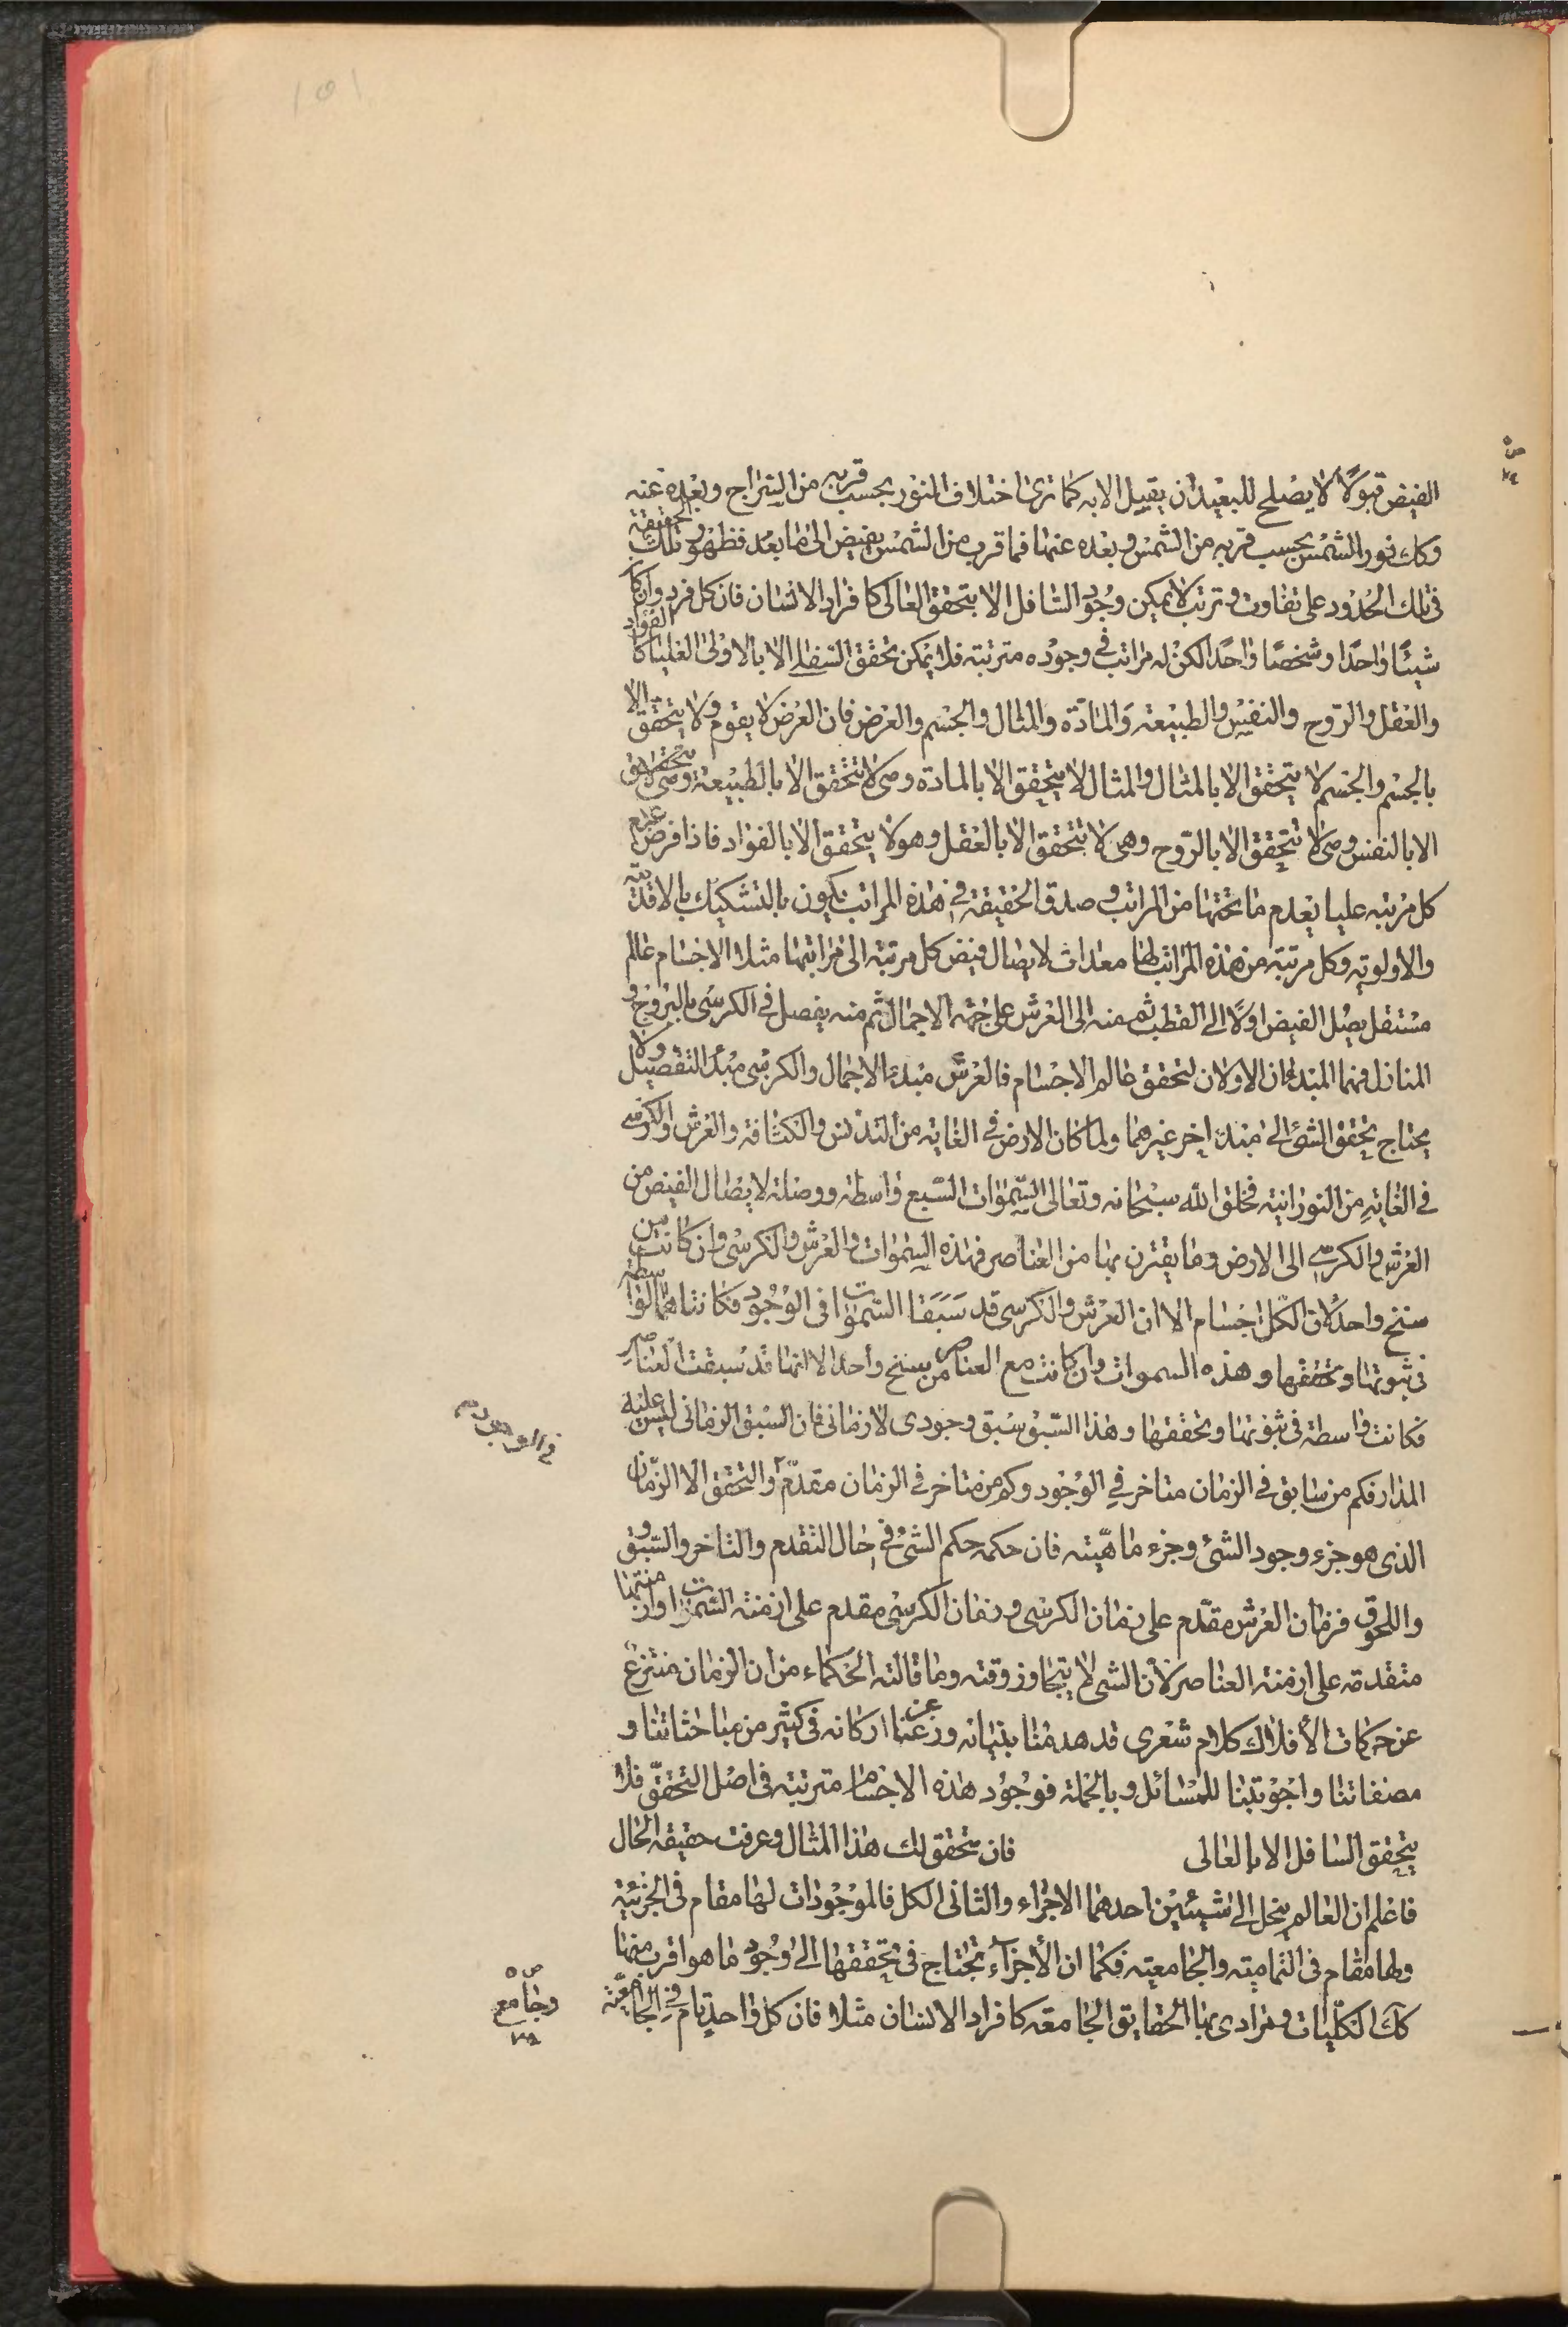 الفيض قبولا لا يصلح للبعيد ان يقبل الا به كما ترى اختلاف النور بحسب قربه من السراج وبعده عنه
وكك نور الشمس بحسب قربه من الشمس وبعده عنها فما قرب من الشمس يفيض الى ما بعد فظهور تلك الحقيقة
في تلك الحدود على تفاوت وترتب لا يمكن وجود السافل الا بتحقق العالى كافراد الانسان فان كل فرد وان كا
شيئًا واحدًا وشخصًا واحدًا لكن له مراتب في وجوده مترتبة فلا يمكن تحقق السفلى الا بالاولى العليا كالفؤاد
والعقل والروح والنفس والطبيعة والمادّة والمثال والجسم والعرض فان العرض لا يقوم ولا يتحقق الا
بالجسم والجسم لا يتحقق الا بالمثال والمثال لا يتحقق الا بالمادة وهى لا تتحقق الا بالطبيعة وهى لا تتحقق
الا بالنفس وهى لا تتحقق الا بالرّوح وهى لا تتحقق الا بالعقل وهو لا يتحقق الا بالفؤاد فاذا فرض عدم
كل مرتبه عليا يعدم ما تحتها من المراتب وصدق الحقيقة في هذه المراتب يكون بالتشكيك بالاقدمية
والأولوية وكل مرتبة من هذه المراتب لها معدات لايصال فيض كل مرتبة الى مراتبها مثلا الاجسام عالم
مستقل يصل الفيض اولا الى القطب ثم منه الى العرش على جهة الاجمال ثم منه يفصل في الكرسى بالبروج و
المنازل فهما المبدءان الاولان لتحقق عالم الاجسام فالعرش مبدء الاجمال والكرسى مبدء التفصيل ولا
يحتاج تحقق الشئ الى مبدء اخر غيرهما ولما كان الارض في الغاية من التدنس والكثافة والعرش والكرسى
في الغاية من النورانية فخلق الله سبحانه وتعالى السموات السبع واسطة ووصلة لايصال الفيض من
العرش والكرسى الى الارض وما يقترن بها من العناصر فهذه السموات والعرش والكرسى وان كانت من
سنخ واحد لان الكل اجسام الا ان العرش والكرسى قد سَبَقا السموات في الوجود فكانتا هما الواسطة
في ثبوتها وتحققها وهذه السموات وان كانت مع العناصر من سنخ واحد الا انها قد سبقت العناصر
فكانت واسطة في ثبوتها وتحققها وهذا السبق سبق وجودى لا زمانى فان السبق الزمانى ليس عليه
المدار فكم من سابق في الزمان متاخر في الوجود وكم من متاخر في الزمان مقدّم والتحقق الا الزّمان
الذى هو جزء وجود الشئ وجزء ماهيّته فان حكمه حكم الشئ في حال التقدم والتاخر والسبق و
واللحوق فزمان العرش مقدّم على زمان الكرسى وزمان الكرسى مقدم على ازمنة السموات وازمنتها
متقدمة على ازمنة العناصر لان الشئ لا يتجاوز وقته وما قالته الحكماء من ان الزمان منتزع
عن حركات الأفلاك كلام شعرى قد هدمنا بنيانه وزعزعنا اركانه في كثير من مباحثاتنا و
مصنفاتنا واجوبتنا للمسائل وبالجملة فوجود هذه الاجسام مترتبة في اصل التحقّق فلا
يتحقق السافل الا بالعالى فان تحقق لك هذا المثال وعرفت حقيقة الحال
فاعلم ان العالم ينحل الى شيئين احدهما الاجزاء والثانى الكل فالموجودات لها مقام في الجزئية
ولها مقام في التمامية والجامعية فكما ان الأجزاء تحتاج في تحققها الى وجود ما هو اقرب منها
كك الكليات ومرادى بها الحقايق الجامعة كافراد الانسان مثلا فان كل واحد تام في الجامعيّة
وجامع